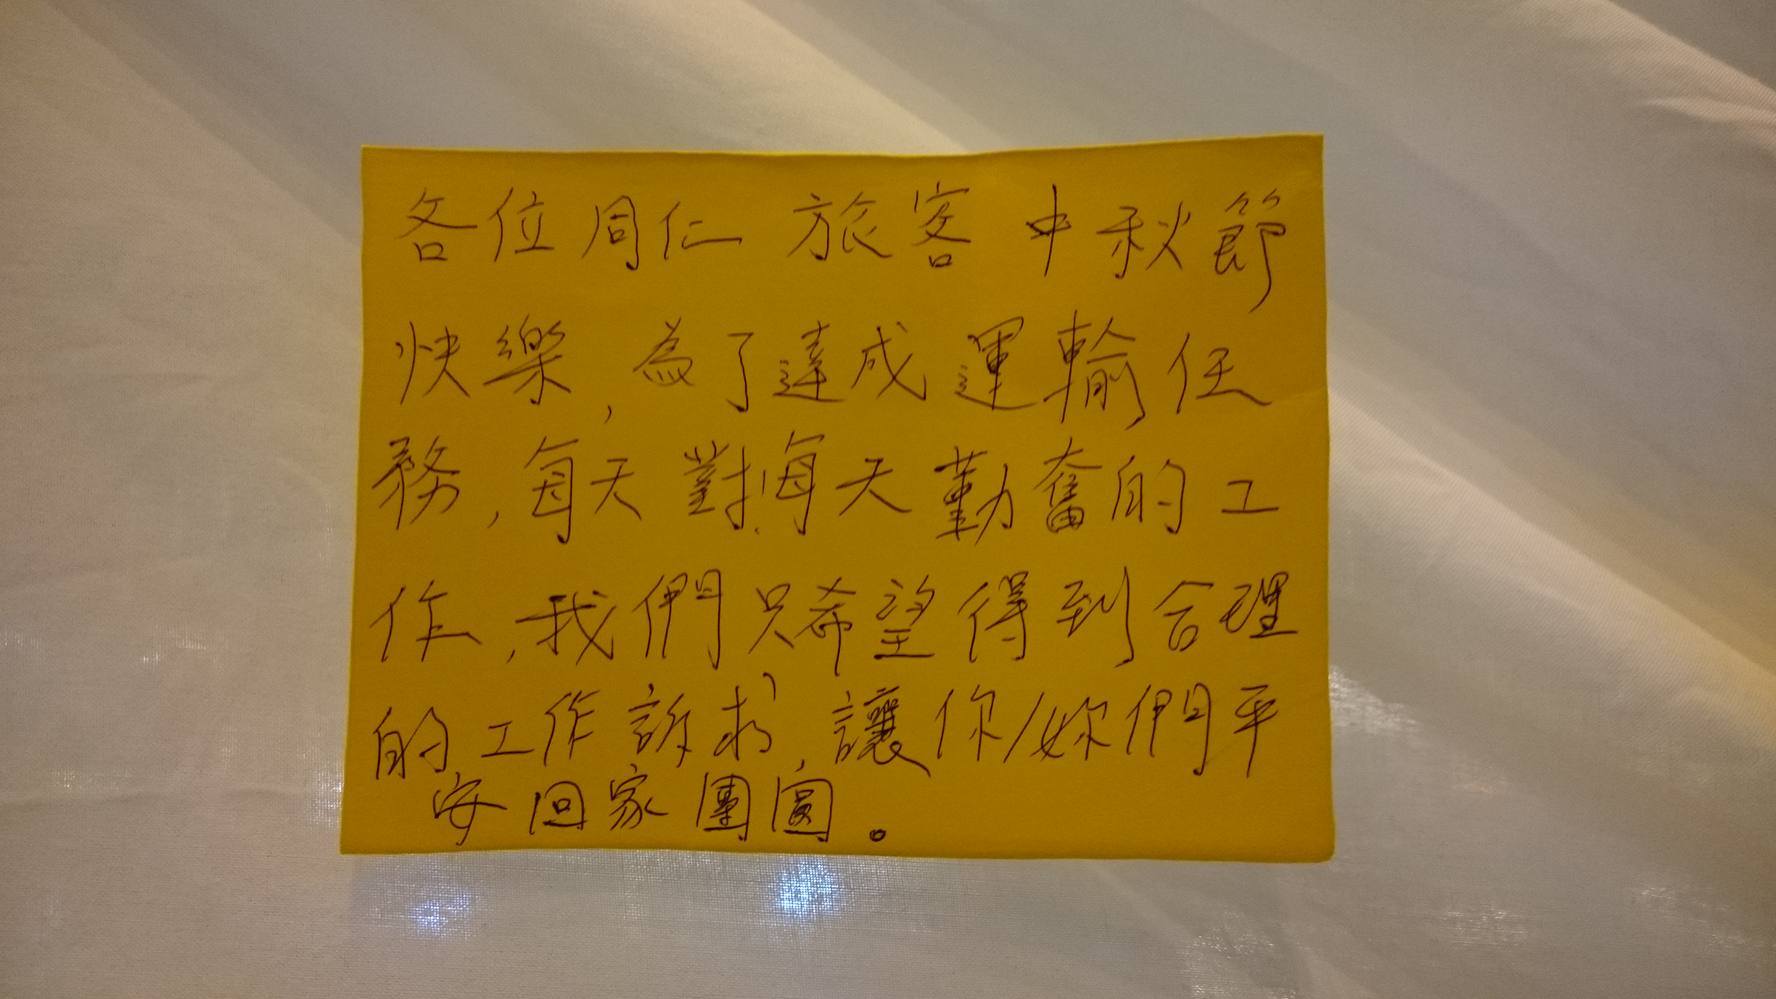 各位同仁 旅客 中秋節
快樂,為了達成運輸任
務,每天對每天勤奮的工
作,我們只希望得到合理
的工作訴求,讓你/妳們平
安回家團圓。